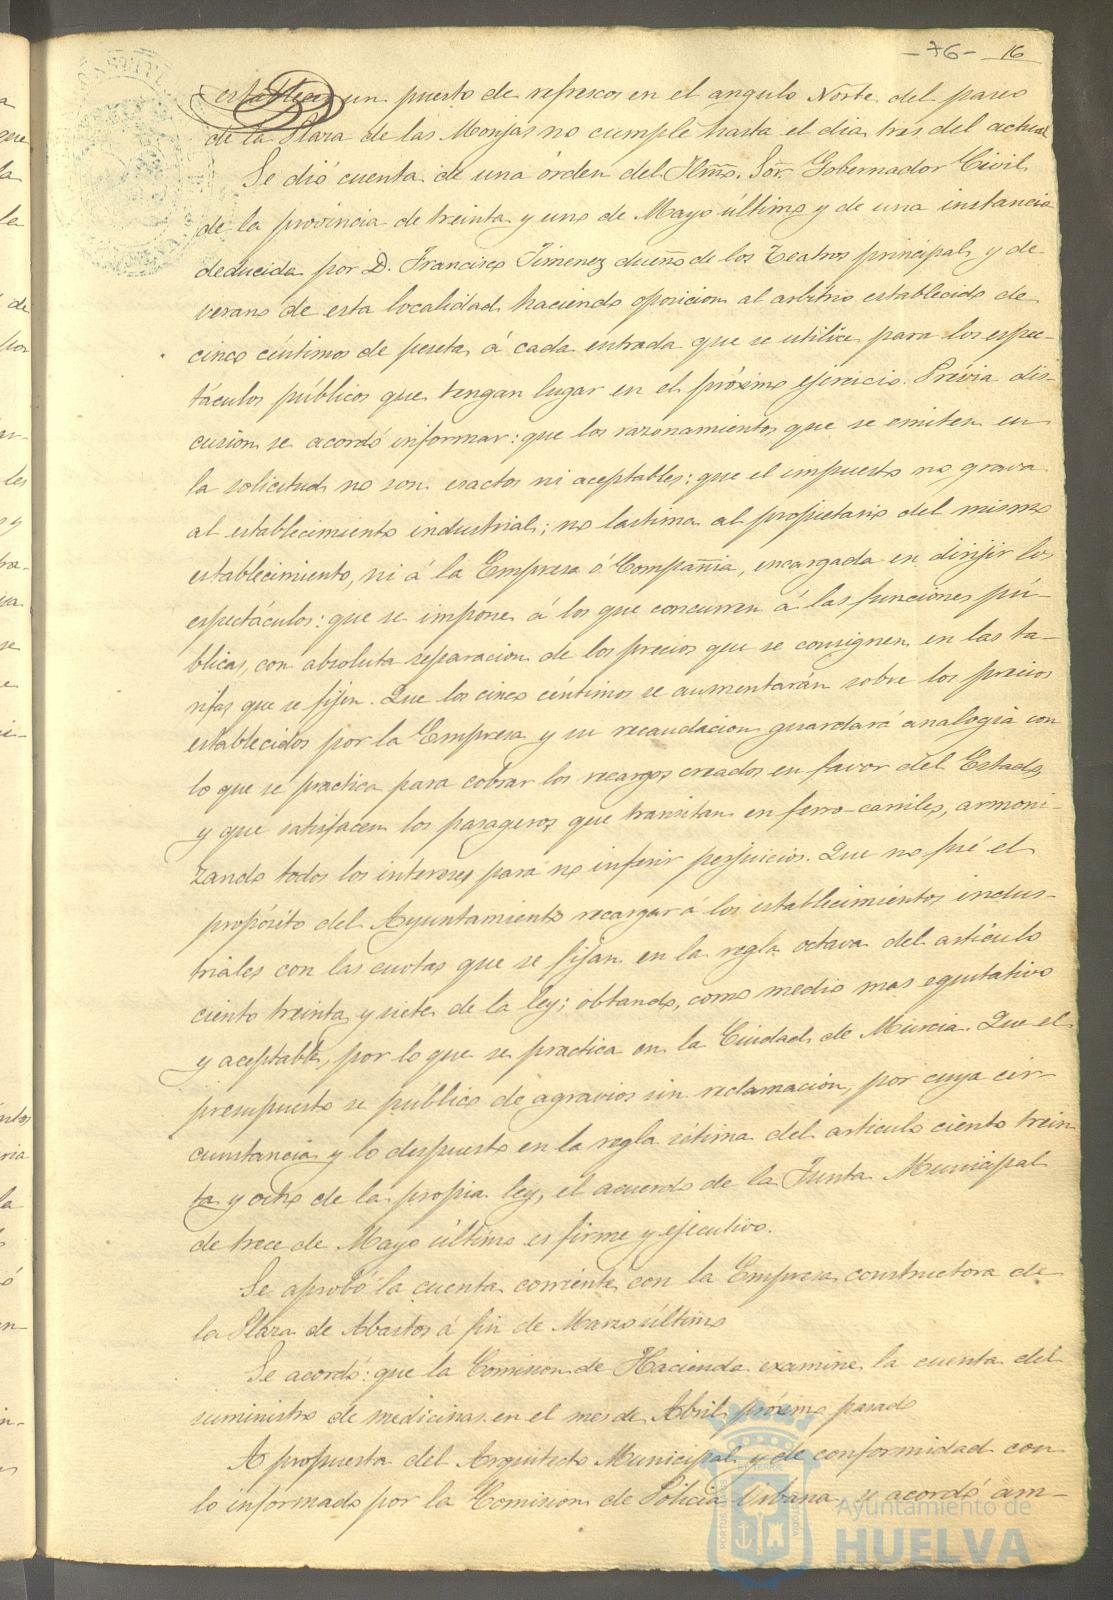 -76- 16
establecer un puesto de refrescos en el angulo Norte del paseo
de la Plaza de las Monjas no cumple hasta el dia tres del actual
Se dió cuenta de una órden del Iltmo. Sor. Gobernador Civil
de la provincia de treinta y uno de Mayo último y de una instancia
deducida por D. Francisco Jimenez dueño de los Teatros principal y de
verano de esta localidad haciendo oposicion al arbitrio establecido de
cinco céntimos de peseta á cada entrada que se utilice para los espec-
táculos públicos que tengan lugar en el próximo ejercicio. Prévia dis-
cusion se acordó informar: que los razonamientos que se emiten en
la solicitud no son esactos ni aceptables: que el impuesto no grava
al establecimiento industrial; no lastima al propietario del mismo
establecimiento, ni á la Empresa ó Compañia, encargada en dirijir los
espectáculos: que se impone á los que concurren á las funciones pú-
blicas, con absoluta separacion de los precios que se consignen en las ta-
rifas que se fijen. Que los cinco céntimos se aumentarán sobre los precios
establecidos por la Empresa y su recaudacion guardará analogia con
lo que se practica para cobrar los recargos creados en favor del Estado,
y que satisfacen los pasageros que transitan en ferro-carriles, armoni-
zando todos los intereses para no inferir perjuicios. Que no fué el
propósito del Ayuntamiento recargar á los establecimientos indus-
triales con las cuotas que se fijan en la regla octava del artículo
ciento treinta y siete de la ley; obtando, como medio mas equitativo
y aceptable, por lo que se practica en la Ciudad de Murcia. Que el
presupuesto se público de agravios sin reclamacion, por cuya cir-
cunstancia y lo dispuesto en la regla sétima del artículo ciento trein
ta y ocho de la propia ley, el acuerdo de la Junta Municipal
de trece de Mayo último es firme y ejecutivo.
Se aprobó la cuenta corriente con la Empresa constructora de
la Plaza de Abastos á fin de Marzo último
Se acordó: que la Comision de Hacienda examine la cuenta del
suministro de medicinas en el mes de Abril próximo pasado
A propuesta del Arquitecto Municipal y de conformidad con
lo informado por la Comision de Policia Urbana, se acordó am-
Ayuntamiento de
HUELVA